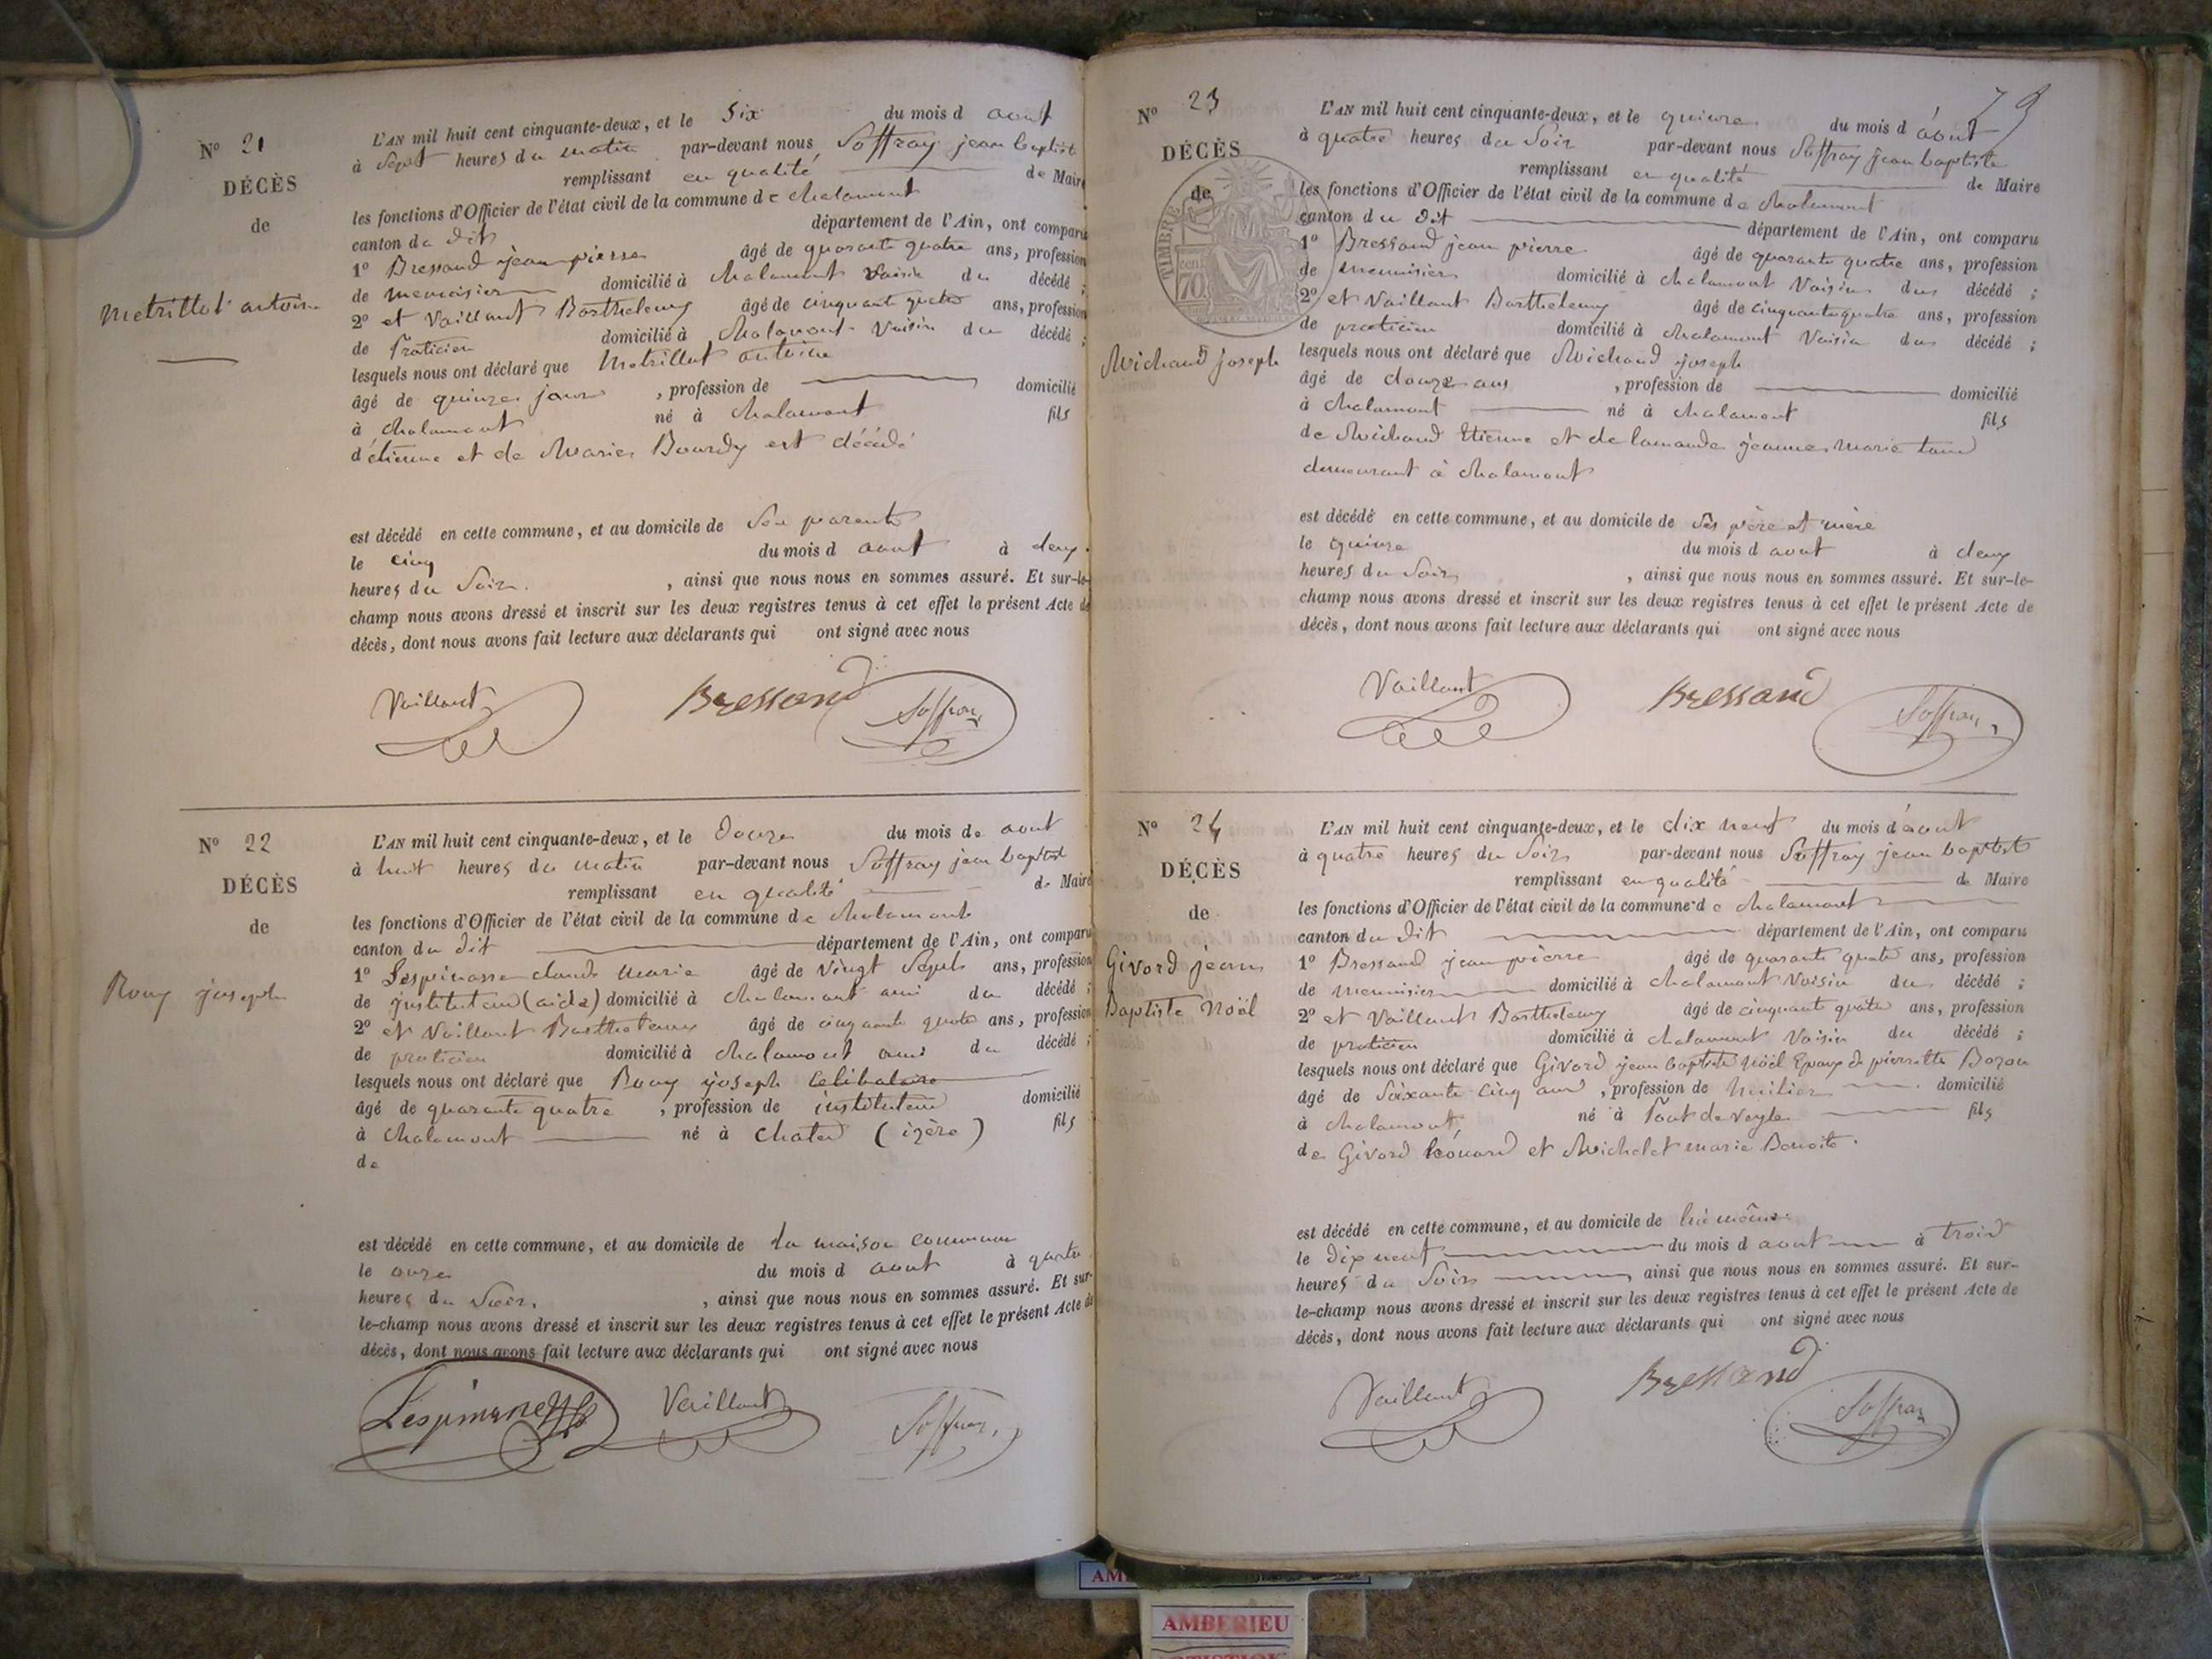 N° 21
DÉCÈS
de
Metrillot antoine
L'AN mil huit cent cinquante-deux, et le Six du mois d aout
à Sept heures du matin par-devant nous Soffray jean baptiste
remplissant en qualité de Maire
les fonctions d'Officier de l'état civil de la commune de chalamont
canton du dit département de l'Ain, ont comparu
1° Bressand jean pierre âgé de quarante quatre ans, profession
de menuisier domicilié à chalamont Voisin du décédé ;
2° et Vaillant Barthelemy âgé de cinquante quatre ans, profession
de Praticien domicilié à chalamont Voisin du décédé ;
lesquels nous ont déclaré que Metrillot antoine
âgé de quinze jours , profession de domicilié
à chalamont né à chalamont fils
d'étienne et de Marie Bourdy est décédé
est décédé en cette commune, et au domicile de Ses parents
le cinq du mois d aout à deux
heures du Soir. , ainsi que nous nous en sommes assuré. Et sur-le-
champ nous avons dressé et inscrit sur les deux registres tenus à cet effet le présent Acte de
décès, dont nous avons fait lecture aux déclarants qui ont signé avec nous
Vaillant Bressand Soffray
N° 22
DÉCÈS
de
Rouy joseph
L'AN mil huit cent cinquante-deux, et le douze du mois de aout
à huit heures du matin par-devant nous Soffray jean baptist
remplissant en qualité de Maire
les fonctions d'Officier de l'état civil de la commune de chalamont
canton du dit département de l'Ain, ont comparu
1° Lespinasse claude marie âgé de vingt Sept ans, profession
de jnstituteur (aide) domicilié à chalamont ami du décédé ;
2° et Vaillant Barthelemy âgé de cinquante quatre ans, profession
de praticien domicilié à chalamont ami du décédé ;
lesquels nous ont déclaré que Rouy joseph celibataire
âgé de quarante quatre , profession de instituteur domicilié
à chalamont né à chated (izère) fils
de
est décédé en cette commune, et au domicile de la maison commune
le onze du mois d aout à quatre
heures du Soir. , ainsi que nous nous en sommes assuré. Et sur-
le-champ nous avons dressé et inscrit sur les deux registres tenus à cet effet le présent Acte de
décès, dont nous avons fait lecture aux déclarants qui ont signé avec nous
Lespinasse Vaillant Soffray
79
N° 23
DÉCÈS
de
TIMBRE
70
Michaud joseph
L'AN mil huit cent cinquante-deux, et le quinze du mois d'aout
à quatre heures du Soir par-devant nous Soffray jean baptiste
remplissant en qualité de Maire
les fonctions d'Officier de l'état civil de la commune de chalamont
canton du dit département de l'Ain, ont comparu
1° Bressand jean pierre âgé de quarante quatre ans, profession
de menuisier domicilié à chalamont Voisin du décédé ;
2° et Vaillant Barthelemy âgé de cinquante quatre ans, profession
de praticien domicilié à chalamont Voisin du décédé ;
lesquels nous ont déclaré que Michaud joseph
âgé de douze ans , profession de domicilié
à chalamont né à chalamont fils
de Michaud Etienne et de lamande jeanne marie
demeurant à chalamont
est décédé en cette commune, et au domicile de Ses père et mère
le quinze du mois d aout à deux
heures du Soir , ainsi que nous nous en sommes assuré. Et sur-le-
champ nous avons dressé et inscrit sur les deux registres tenus à cet effet le présent Acte de
décès, dont nous avons fait lecture aux déclarants qui ont signé avec nous
Vaillant Bressand Soffray
N° 24
DÉCÈS
de
Givord jean
Baptiste Noël
L'AN mil huit cent cinquante-deux, et le dix neuf du mois d'aout
à quatre heures du Soir par-devant nous Soffray jean baptist
remplissant en qualité de Maire
les fonctions d'Officier de l'état civil de la commune de chalamont
canton du dit département de l'Ain, ont comparu
1° Bressand jean pierre âgé de quarante quatre ans, profession
de menuisier domicilié à chalamont Voisin du décédé ;
2° et Vaillant Barthelemy âgé de cinquante quatre ans, profession
de praticien domicilié à chalamont Voisin du décédé ;
lesquels nous ont déclaré que Givord jean baptiste Noël Epoux de pierrette Bozon
âgé de Soixante cinq ans , profession de domicilié
à chalamont, né à Pont de veyle fils
de Givord Léonard et Michelet marie Benoite.
est décédé en cette commune, et au domicile de lui même
le dix neuf du mois d aout à trois
heures du Soir ainsi que nous nous en sommes assuré. Et sur-
le-champ nous avons dressé et inscrit sur les deux registres tenus à cet effet le présent Acte de
décès, dont nous avons fait lecture aux déclarants qui ont signé avec nous
Vaillant Bressand Soffray
AMBERIEU